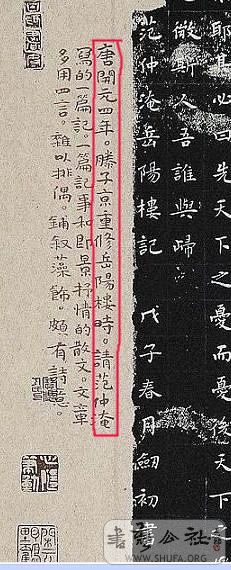 耶其必曰先天下之憂而憂後天下之
微斯人吾誰與歸
范仲淹岳陽樓記 戊子春月劍初
唐開元四年。滕子京重修岳陽樓時。請范仲淹
寫的一篇記。一篇記事和即景抒情的散文。文章
多用四言。雜以排偶。鋪叙藻飾。頗有詩意。
公社
WWW.SHUFA.ORG